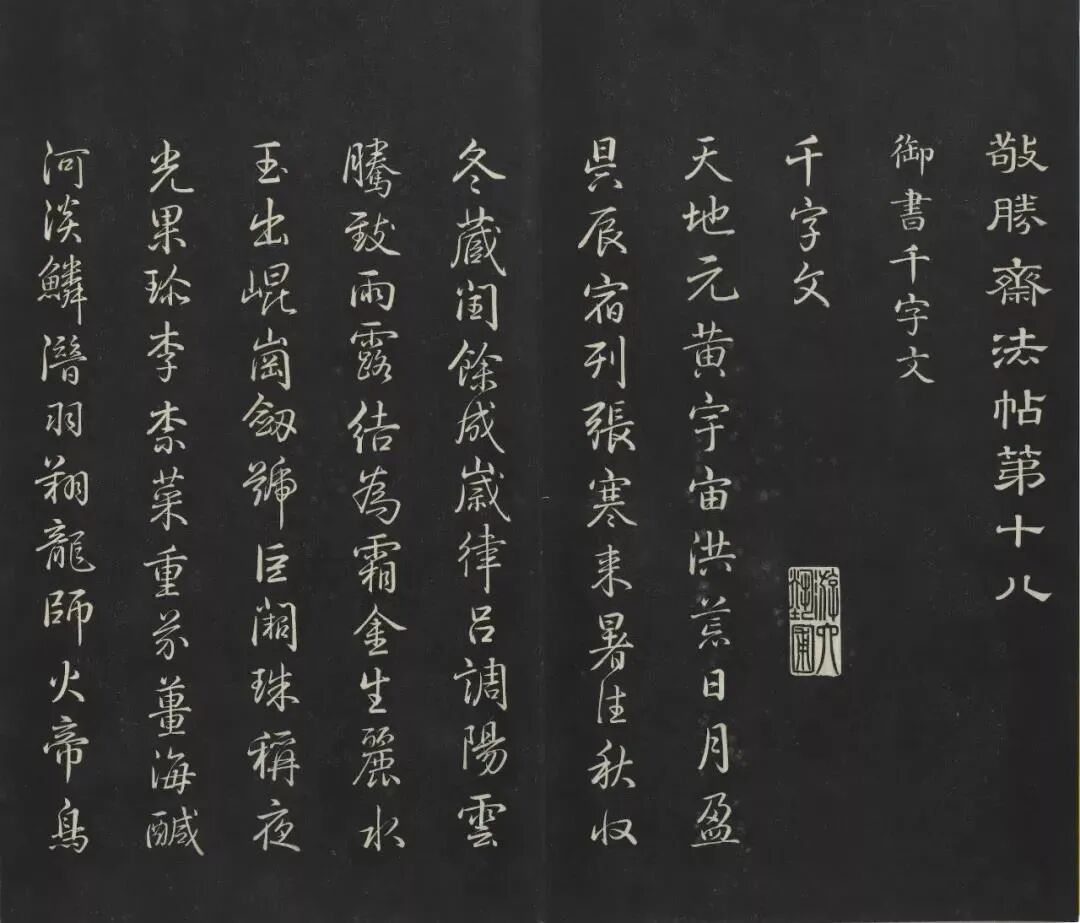 敬勝齋法帖第十八
御書千字文
千字文
天地元黃宇宙洪荒日月盈
昃辰宿列張寒来暑往秋收
冬藏閏餘成歲律呂調陽雲
騰致雨露結為霜金生麗水
玉出崐崗劔號巨闕珠稱夜
光果珎李柰菜重芥薑海鹹
河淡鱗潛羽翔龍師火帝鳥